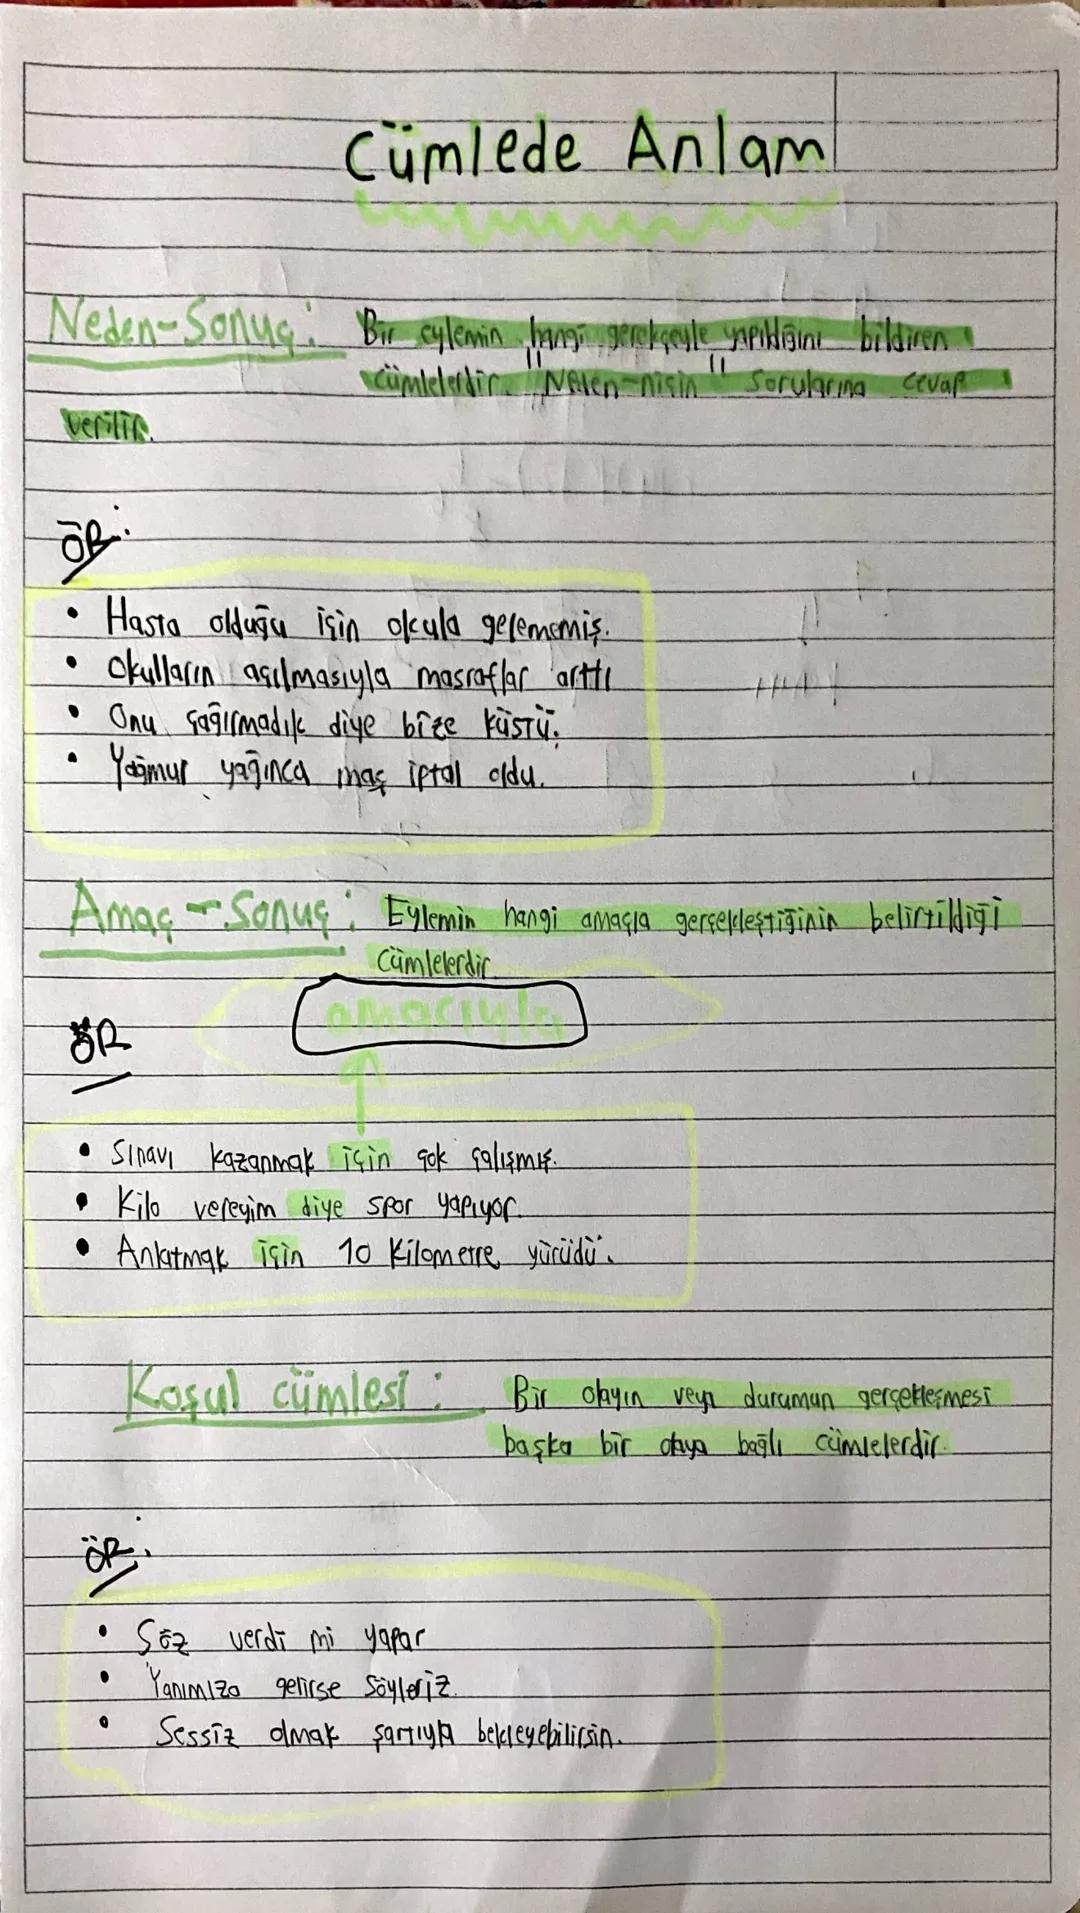 Cümlede Anlam
Neden-Sonuç: Bir eylemin hangi gerekçeyle yapıldığını bildiren
cümlelerdir. "Neden-niçin" sorularına cevap
verilir.
ÖR:
• Hasta olduğu için okula gelememiş.
• Okulların açılmasıyla masraflar arttı
• Onu çağırmadık diye bize küstü.
• Yağmur yağınca maç iptal oldu.
Amaç-Sonuç: Eylemin hangi amaçla gerçekleştiğinin belirtildiği
cümlelerdir.
amacıyla
ÖR
• Sınavı kazanmak için çok çalışmış.
• Kilo vereyim diye spor yapıyor.
• Anlatmak için 10 kilometre yürüdü.
Koşul cümlesi: Bir olayın veya durumun gerçekleşmesi
başka bir olaya bağlı cümlelerdir.
ÖR:
• Söz verdi mi yapar
• Yanımıza gelirse söyleriz.
• Sessiz olmak şartıyla bekleyebilirsin.